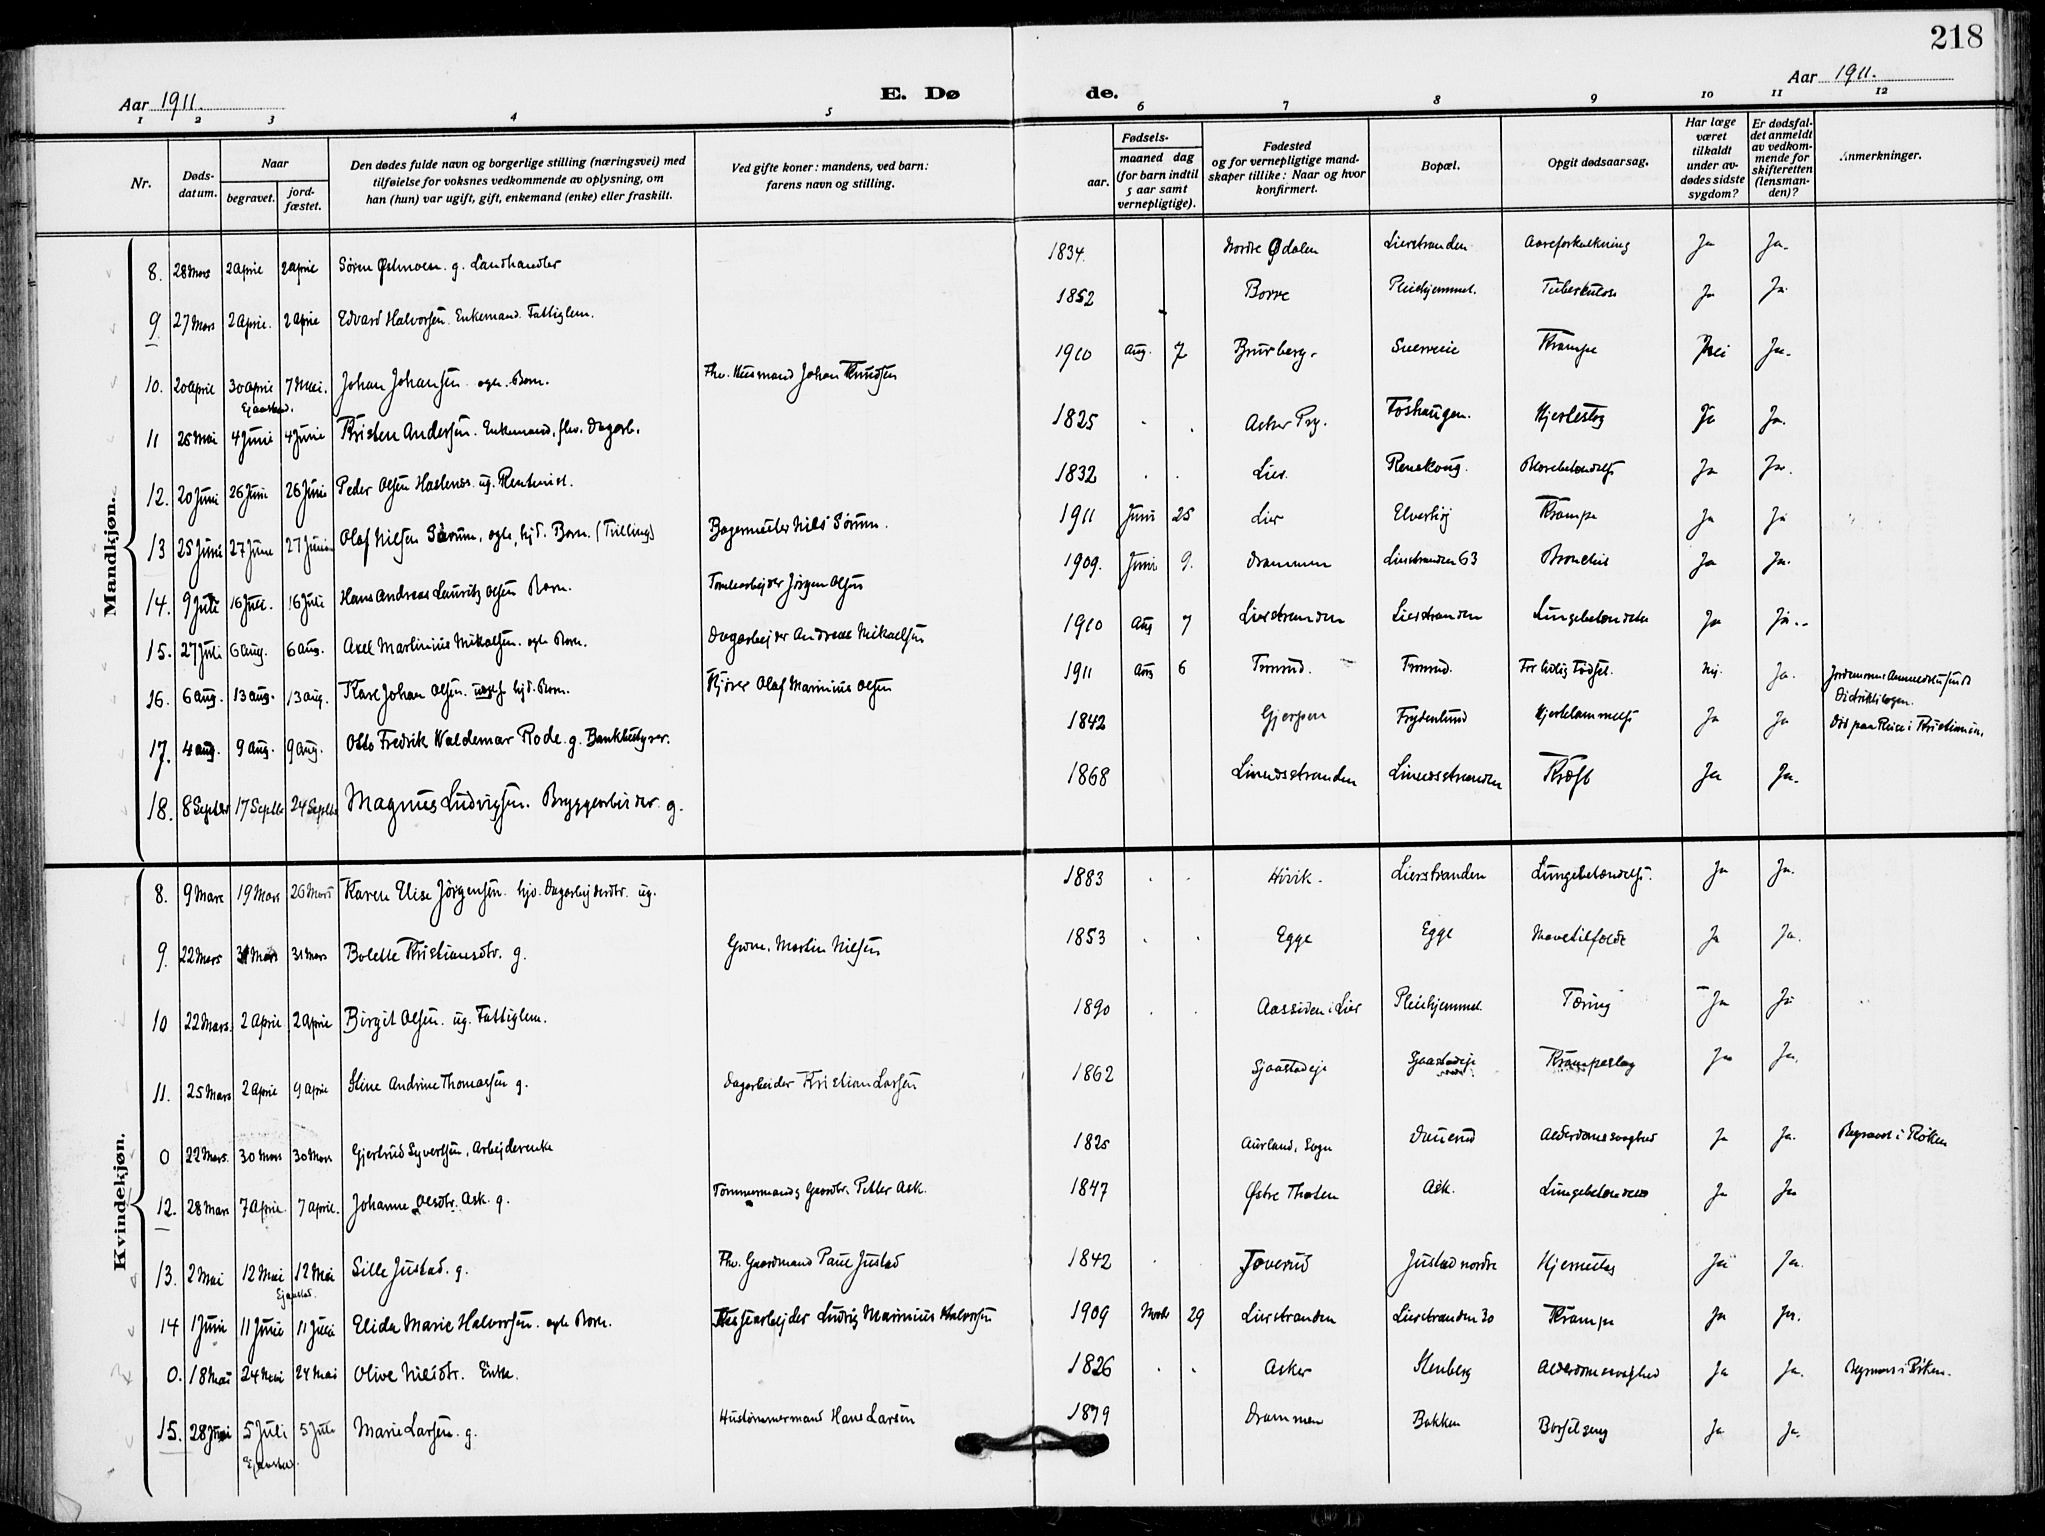 218
Aar 1911. E. Dø de. Aar 1911.
1 2 3 4 5 6 7 8 9 10 11 12
Nr. Døds-datum. Naar begravet. jord-fæstet. Den dødes fulde navn og borgerlige stilling (næringsvei) med tilføielse for voksnes vedkommende av oplysning, om han (hun) var ugift, gift, enkemand (enke) eller fraskilt. Ved gifte koner: mandens, ved barn: farens navn og stilling. Fødsels- aar. maaned dag (for barn indtil 5 aar samt vernepligtige). Fødested og for vernepligtige mandskaper tillike: Naar og hvor konfirmert. Bopæl. Opgit dødsaarsag. Har læge været tilkaldt under avdødes sidste sygdom? Er dødsfaldet anmeldt av vedkommende for skifteretten (lensmanden)? Anmerkninger.
Mandkjøn.
8. 28 Mars 2 April 2 April Søren Østmoen. g. Landhandler 1834. Nordre Odalen Lierstranden Aareforkalkning Ja Ja.
9. 27 Mars 2 April. 2 April Edvard Halvorsen. Enkemand. Fattiglem. 1852 Borre Pleiehjemmet. Tuberkulose Ja Ja.
10. 20 April 30 April 7 Mai. Johan Johansen. egte. Barn. Fhv. Husmand Johan Knudsen 1910 Aug. 7 Krampe Nei Ja.
11 25 Mai 4 Juni 4 Juni Kristen Andersen. Enkemand, fhv. Dagarb. 1825 Asker Prg. Foshaugen. Ja Ja.
12. 20 Juni 26 Juni 26 Juni Peder Olsen ug. Rentenist. 1832 Lier Ja Ja.
13 25 Juni 27 Juni 27 Juni Olaf Nielsen Sørum, egte, hjd. Barn. (Tvilling) Bagermester Nils Sørum. 1911 Juni 25 Lier Krampe Ja Ja
14. 9 Juli 16 Juli. 16 Juli Hans Andreas Lauritz Olsen Barn. Tomtearbejder Jørgen Olsen 1909. Juni 9. Drammen Lierstranden 63 Ja Ja.
15. 27 Juli 6 Aug. 6 Aug. Axel Martinius Mikalsen. egte Barn. Dagarbejder Andreas Mikaelsen 1910 Aug 7 Lierstranden Lierstranden Lungebetændelse Ja Ja.
16. 6 Aug. 13 Aug. 13 Aug. Karl Johan Olsen. hjd. Barn. Kjører Olaf Marinius Olsen 1911 Aug 6 For tidlig Fødsel. Nej. Ja.
17. 4 Aug. 9 Aug. 9 Aug. Otto Fredrik Waldemar Rode. g. 1842 Gjerpen Frydenlund Hjertelammelse Ja Ja Død paa Reise i Kristiania.
18. 8 Septbr 17 Septbr 24 Septbr Magnus Ludvigsen. Bryggearbeider. g. 1868 Ja Ja.
Kvindekjøn.
8. 9 Mars 19 Mars 26 Mars Karen Elise Jørgensen. ug. 1883 Lierstranden Lungebetændelse. Ja Ja.
9. 22 Mars 31 Mars 31 Mars Bolette Kristiansdtr. g. Martin Nilsen 1853 Egge Egge Mavetilfælde Ja Ja.
10 22 Mars. 2 April 2 April Birgit Olsen. ug. Fattiglem. 1890 Aassiden i Lier Pleiehjemmet. Tæring Ja Ja
11. 25 Mars 2 April 9 April Stine Andrine Thomassen g. Dagarbeider Kristian Larsen 1862 Sjaastadeje Sjaastadeje Krampeslag Ja Ja.
0 22 Mars. 30 Mars 30 Mars Gjertrud Syvertsen, Arbejderenke 1825 Aurland, Sogn Alderdomssvaghed Ja Ja. Begravet i Røken
12. 28 Mars 7 April. 7 April. Johanne Olsdtr. Ask. g. Petter Ask. 1847 Østre Thoten Ask. Lungebetændelse Ja Ja
13. 2 Mai 12 Mai 12 Mai Sille Justad. g. Fhv. Gaardmand Paul Justad 1842 Justad nordre Ja Ja.
14 1 Juni 11 Juni 11 Juni Elida Marie Halvorsen. egte Barn. Ludvig Marinius Halvorsen 1909 Marts 29 Lierstranden Lierstranden 30 Krampe Ja Ja.
0. 18 Mai 24 Mai 24 Mai Olive Nilsdtr. Enke. 1826 Asker Stenberg Alderdomssvaghed Ja Ja. Begravet i Røken.
15. 28 Juni 5 Juli 5 Juli Marie Larsen. g. Hustømmermand Hans Larsen 1879 Drammen Bakken Barselseng Ja Ja.